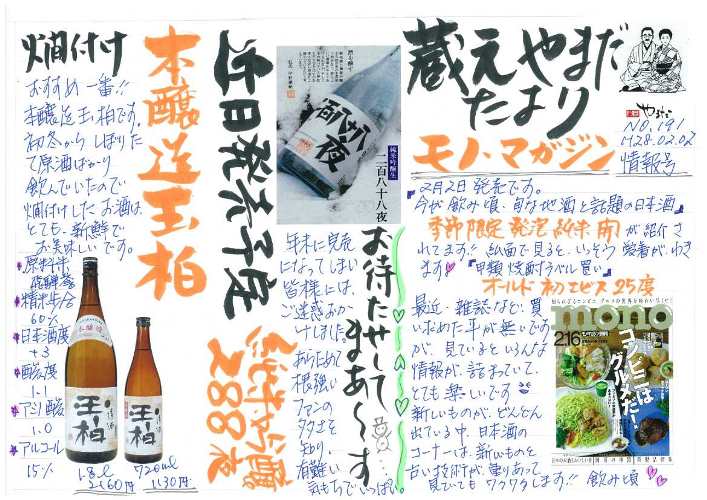 蔵元やまだ
たより
やまだ
NO,191
H28.02.02
情報号
モノ・マガジン
2月2日発売です。
『今が飲み頃、旬な地酒と話題の日本酒』
季節限定発泡純米 が紹介さ
れてます!!紙面で見ると、いっそう栄養が、わき
ます♡『甲類焼酎ラベル買い』
オールド初エビス25度
最近、雑誌など、買
い求めた事が無いです
が、見ているといろんな
情報が、詰まっていて、
とても楽しいです
新しいものが、どんどん
出ている中、日本酒の
コーナーは、新しいものと
古い技術が、重りあって
見ていてもワクワクします!! 飲み頃
mono
2.16
コンビニは
グルメだ!
二百八十八夜
純米吟醸生
近日発売予定
純米吟醸
288夜
お待たせして
まあ〜す
年末に完売
になってしまい
皆様には、
ご迷惑おかけ
しました。
あらためて
根強い
ファンの
多さを
知り、
有難い
気もちでいっぱい。
本醸造玉柏
燗付け
おすすめ一番!!
本醸造玉柏です。
初冬から しぼりた
て原酒ばかり
飲んでいたので
燗付けしたお酒は、
とても、新鮮で
お美味しいです。
原料米
飛騨誉
精米歩合
60%
日本酒度
+3
酸度
1.1
アミノ酸
1.0
アルコール
15%
本醸造
玉柏
玉柏
1.8L
2160円
720ml
1130円